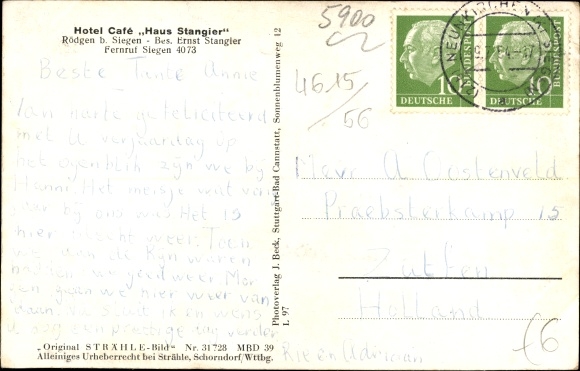 Hotel Café „Haus Stangier"
Rödgen b. Siegen - Bes. Ernst Stangier
Fernruf Siegen 4073
Beste Tante Annie
Van harte gefeliciteerd
met U verjaardag op
het ogenblik zijn we bij
Hanni. Het meisje wat van
jaar bij ons was. Het is
hier slecht weer. Toen
we aan de Rijn waren
hadden we goed weer. Mor
gen gaan we hier weer van
daan. Nu sluit ik en wens
U nog een prettige dag verder
„Original STRÄHLE-Bild" Nr. 31728 MBD 39
Alleiniges Urheberrecht bei Strähle, Schorndorf/Wttbg.
Photoverlag J. Beck, Stuttgart-Bad Cannstatt, Sonnenblumenweg 12
L 97
5900
46.15
56
10
DEUTSCHE
BUNDESPOST
10
DEUTSCHE
BUNDESPOST
NEUNKIRCHEN
Mevr A Oostenveld
Praebsterkamp 15
Zutfen
Holland
Rie en Adriaan
€6